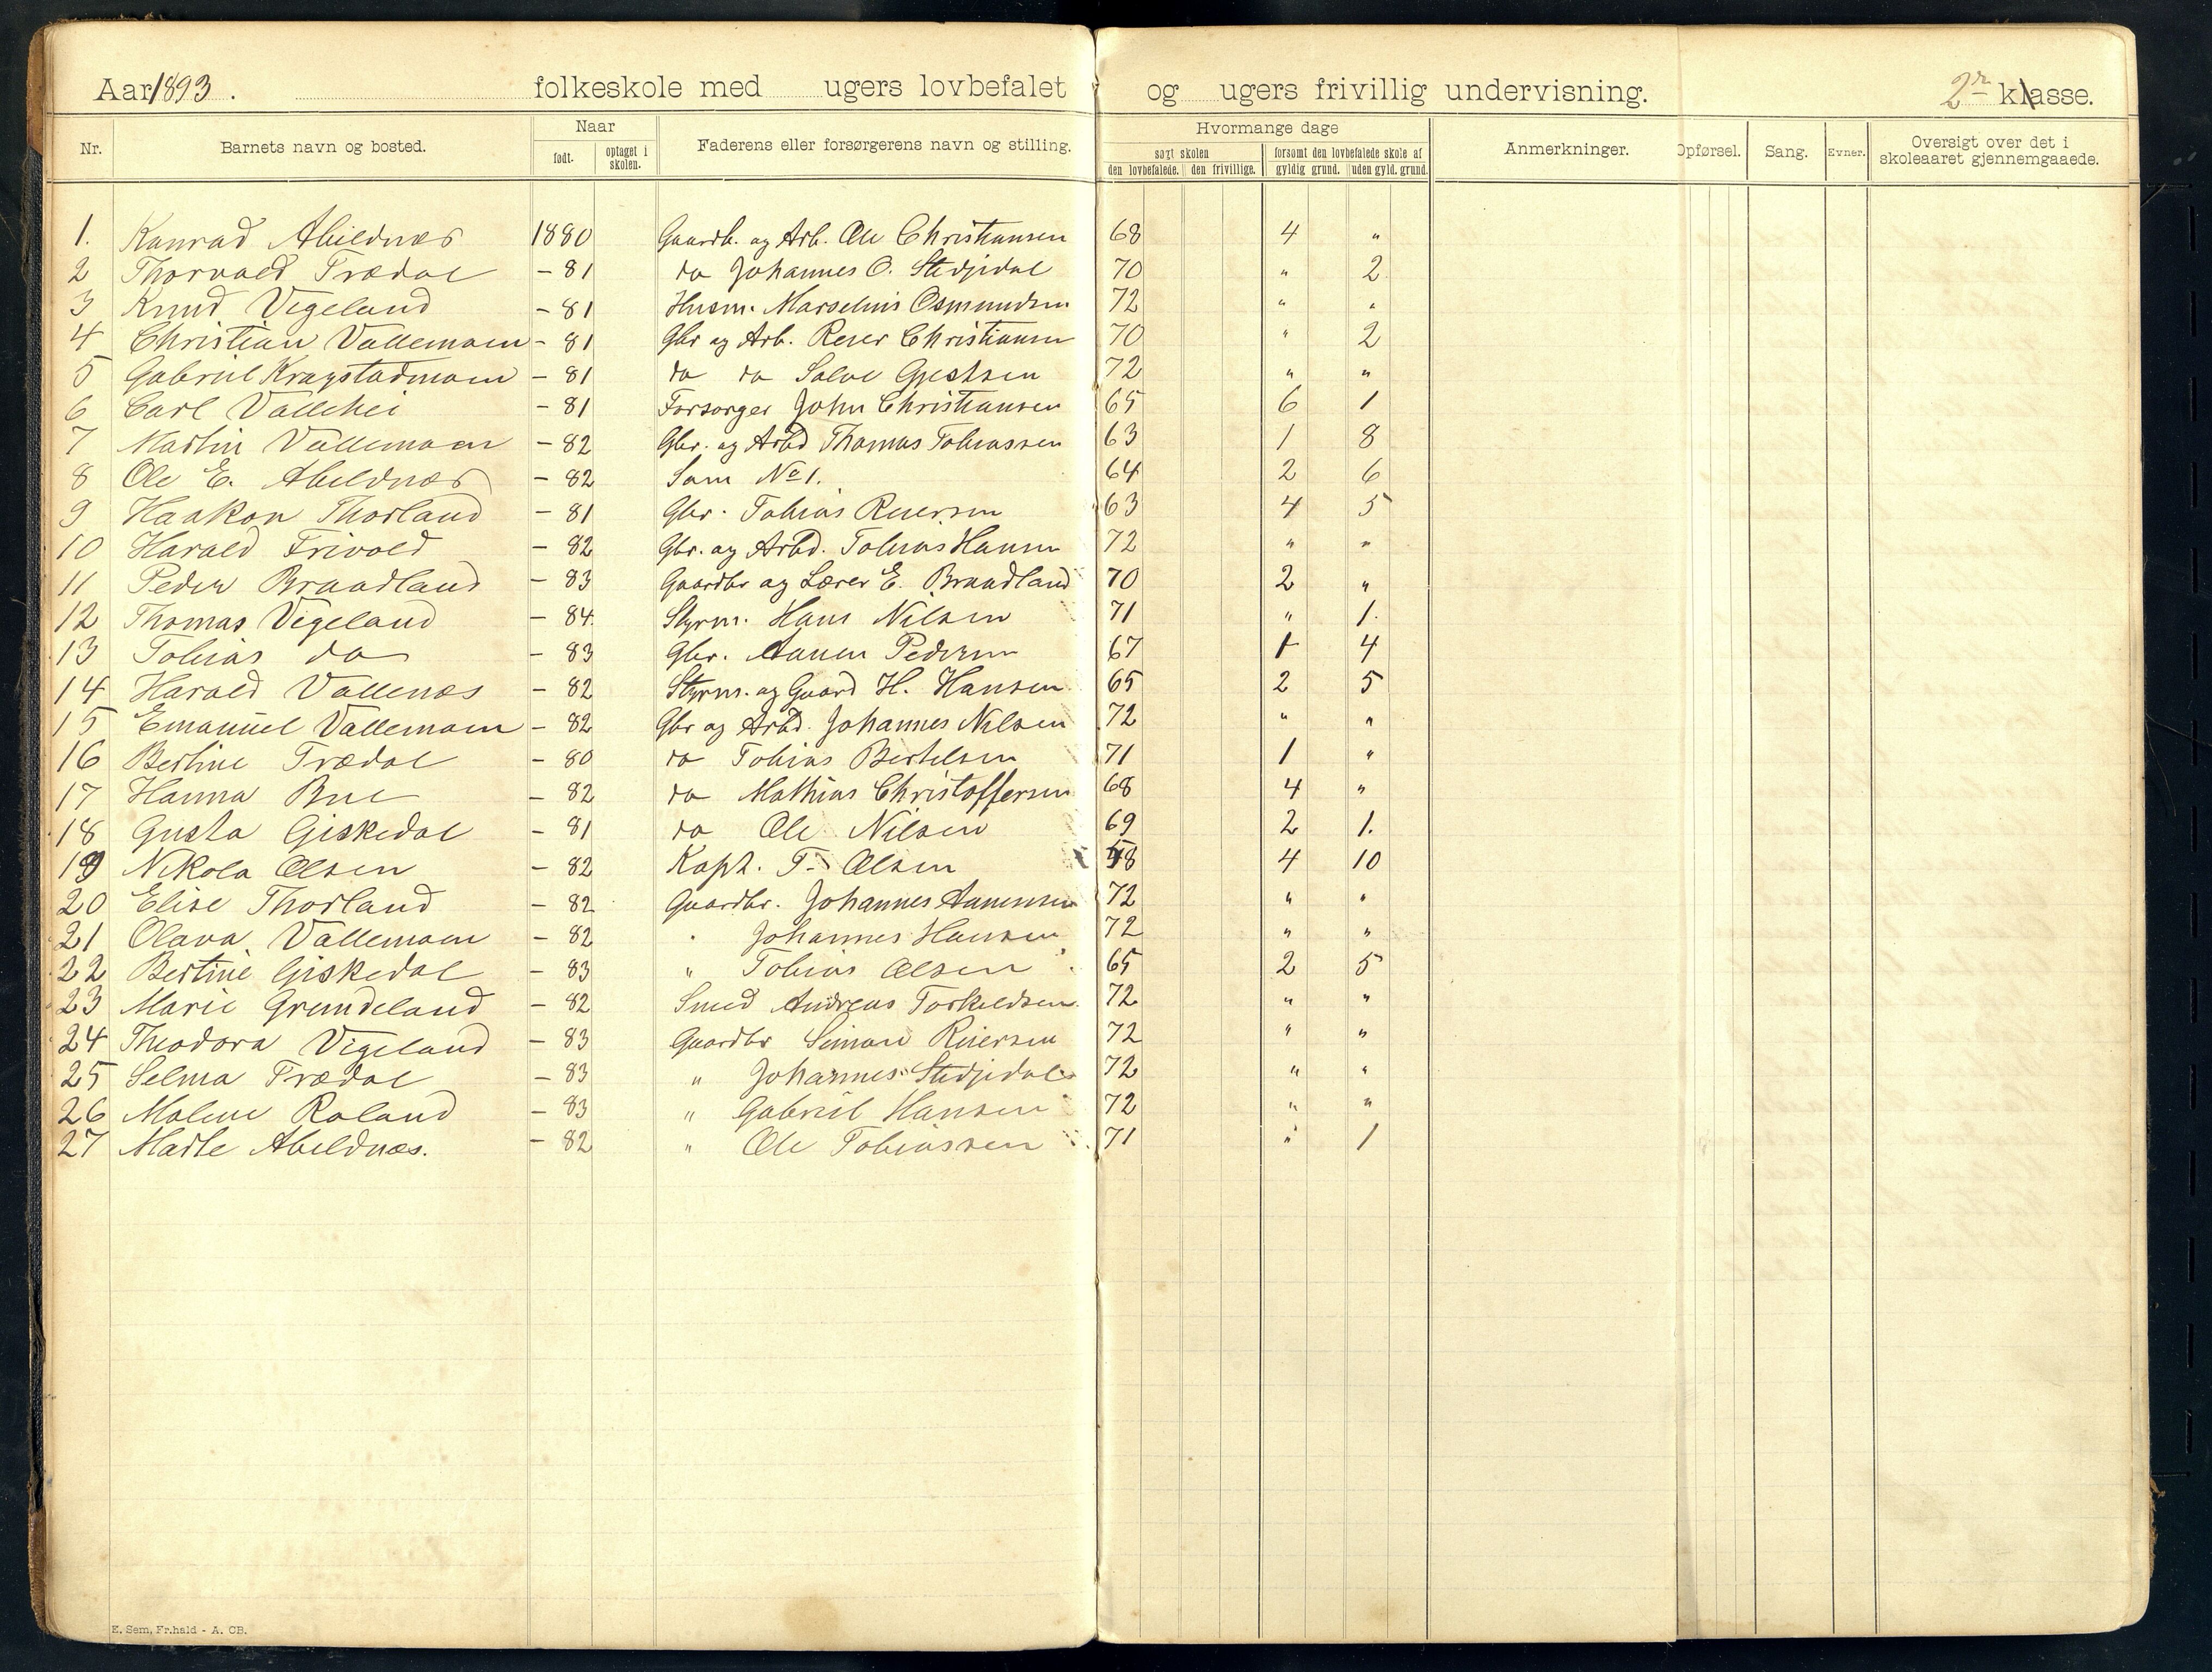 Aar 1893. folkeskole med ugers lovbefalet og ugers frivillig undervisning. 2r klasse.
Nr. Barnets navn og bosted. Naar født. optaget i skolen. Faderens eller forsørgerens navn og stilling. Hvormange dage søgt skolen den lovbefalede. den frivillige. forsømt den lovbefalede skole af gyldig grund. uden gyld. grund. Anmerkninger. Opførsel. Sang. Evner. Oversigt over det i skoleaaret gjennemgaaede.
1. Konrad Abildnæs 1880 Gaardb. og Arb. Ole Christiansen 68 4 "
2 Thorvald Trædal - 81 do Johannes O. Stedjedal 70 " 2
3 Knud Vigeland - 81 Husm. Marselius Osmundsen 72 " "
4 Christian Vallemoen - 81 Gbr og Arb. Reier Christiansen 70 " 2
5 Gabriel Kragstadmoen - 81 do do Salve 72 " "
6 Carl Vallehei - 81 Forsørger John Christiansen 65 6 1
7 Martin Vallemoen - 82 Gbr. og Arbd Thomas Tobiassen 63 1 8
8 Ole E. Abildnæs - 82 Som No 1. 64 2 6
9 Haakon Thorland - 81 Gbr. Tobias Reiersen 63 4 5
10 Harald Frivold - 82 Gbr. og Arbd. Tobias Hansen 72 " "
11 Peder Braadland - 83 Gaardbr og Lærer E. Braadland 70 2 "
12 Thomas Vigeland - 84. Styrm. Hans Nilsen 71 " 1.
13 Tobias do - 83 Gbr. Aanen Pedersen 67 1 4
14 Harald Vallenæs - 82 Styrm. og Gaard H. Hansen 65 2 5
15 Emanuel Vallemoen - 82 Gbr og Arbd. Johannes Nilsen 72 " "
16 Bertine Trædal - 80 do Tobias Bertelsen 71 1 "
17 Hanna Bue - 82 do Mathias Christoffersen 68 4 "
18 Gusta Giskedal - 81 do Ole Nilsen 69 2 1.
19 Nikola Olsen - 82 Kapt. T. Olsen 58 4 10
20 Elise Thorland - 82 Gaardbr. Johannes Aanensen 72 " "
21 Olava Vallemoen - 82 " Johannes Hansen 72 " "
22 Bertine Giskedal - 83 " Tobias Olsen 65 2 5
23 Marie Grundeland - 82 Smed Andreas Torkeldsen 72 " "
24 Theodora Vigeland - 83 Gaardbr Simon Reiersen 72 " "
25 Selma Trædal - 83 " Johannes Stedjedal 72 " "
26 Malene Roland - 83 " Gabriel Hansen 72 " "
27 Marte Abildnæs. - 82 " Ole Tobiassen 71 " 1
E. Sem, Fr.hald - A. CB.